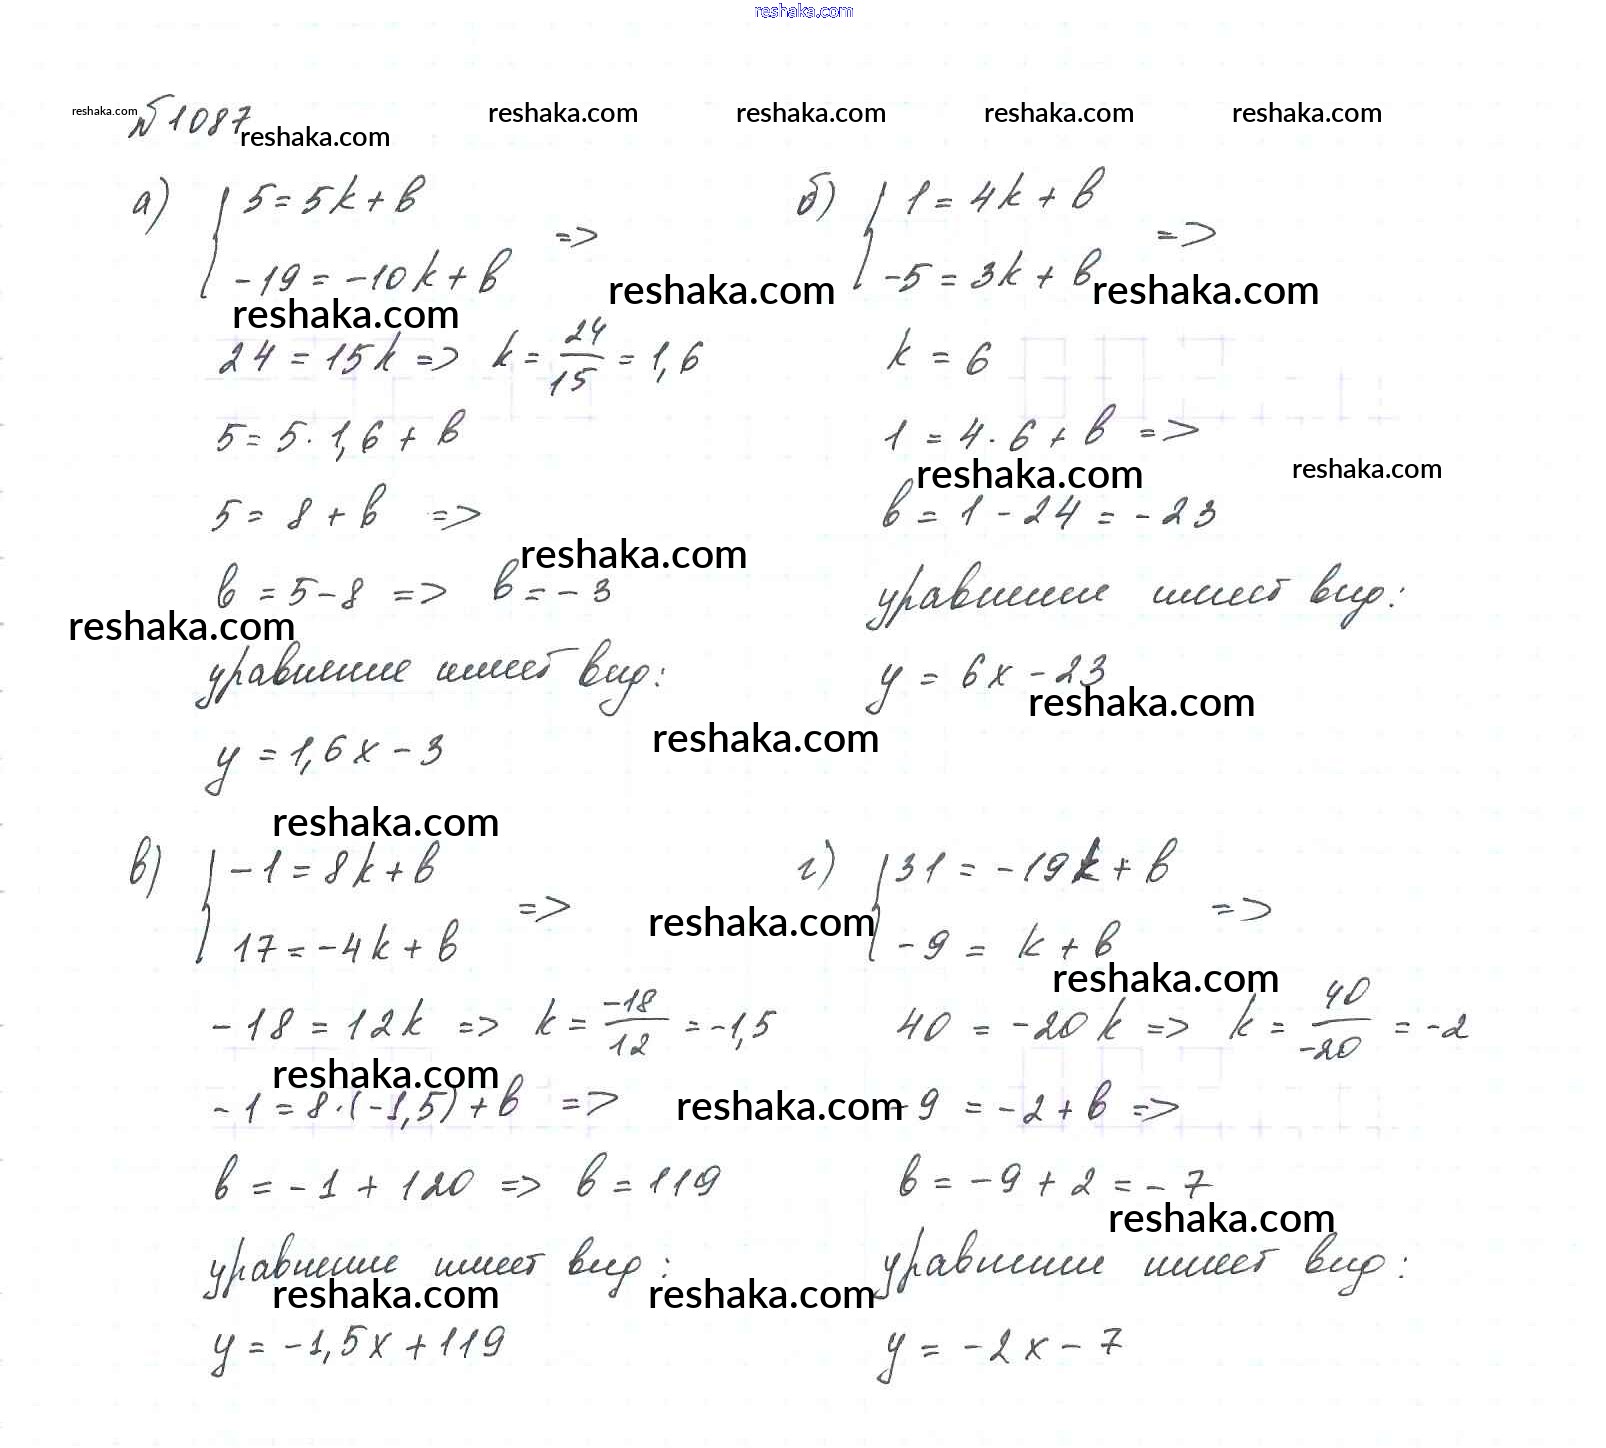 reshaka.com
reshaka.com №1087 reshaka.com reshaka.com reshaka.com reshaka.com reshaka.com
а) { 5 = 5k + b
-19 = -10k + b =>
reshaka.com reshaka.com
24 = 15k => k = 24/15 = 1,6
5 = 5 · 1,6 + b
5 = 8 + b =>
reshaka.com
b = 5 - 8 => b = -3
reshaka.com
уравнение имеет вид:
reshaka.com
y = 1,6x - 3
б) { 1 = 4k + b
-5 = 3k + b =>
reshaka.com
k = 6
1 = 4 · 6 + b =>
reshaka.com reshaka.com
b = 1 - 24 = -23
уравнение имеет вид:
y = 6x - 23
reshaka.com
reshaka.com
в) { -1 = 8k + b
17 = -4k + b =>
reshaka.com
-18 = 12k => k = -18/12 = -1,5
reshaka.com
-1 = 8 · (-1,5) + b =>
reshaka.com
b = -1 + 120 => b = 119
уравнение имеет вид:
reshaka.com reshaka.com
y = -1,5x + 119
г) { 31 = -19k + b
-9 = k + b =>
reshaka.com
40 = -20k => k = 40/-20 = -2
-9 = -2 + b =>
b = -9 + 2 = -7
reshaka.com
уравнение имеет вид:
y = -2x - 7